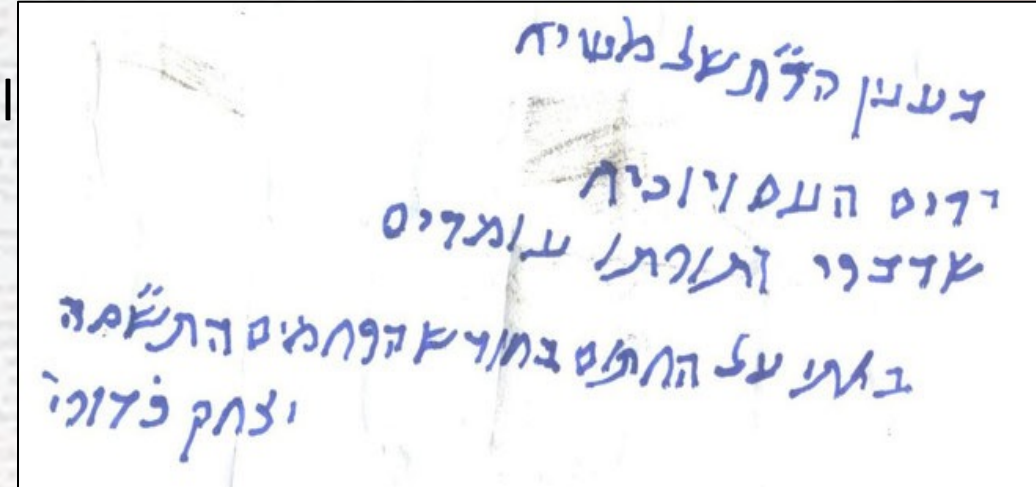 בענין הר״ת של משיח
ירים העם ויוכיח
שדברו ותורתו עומדים
באתי על החתום בחודש הרחמים התש״סה
יצחק כדורי